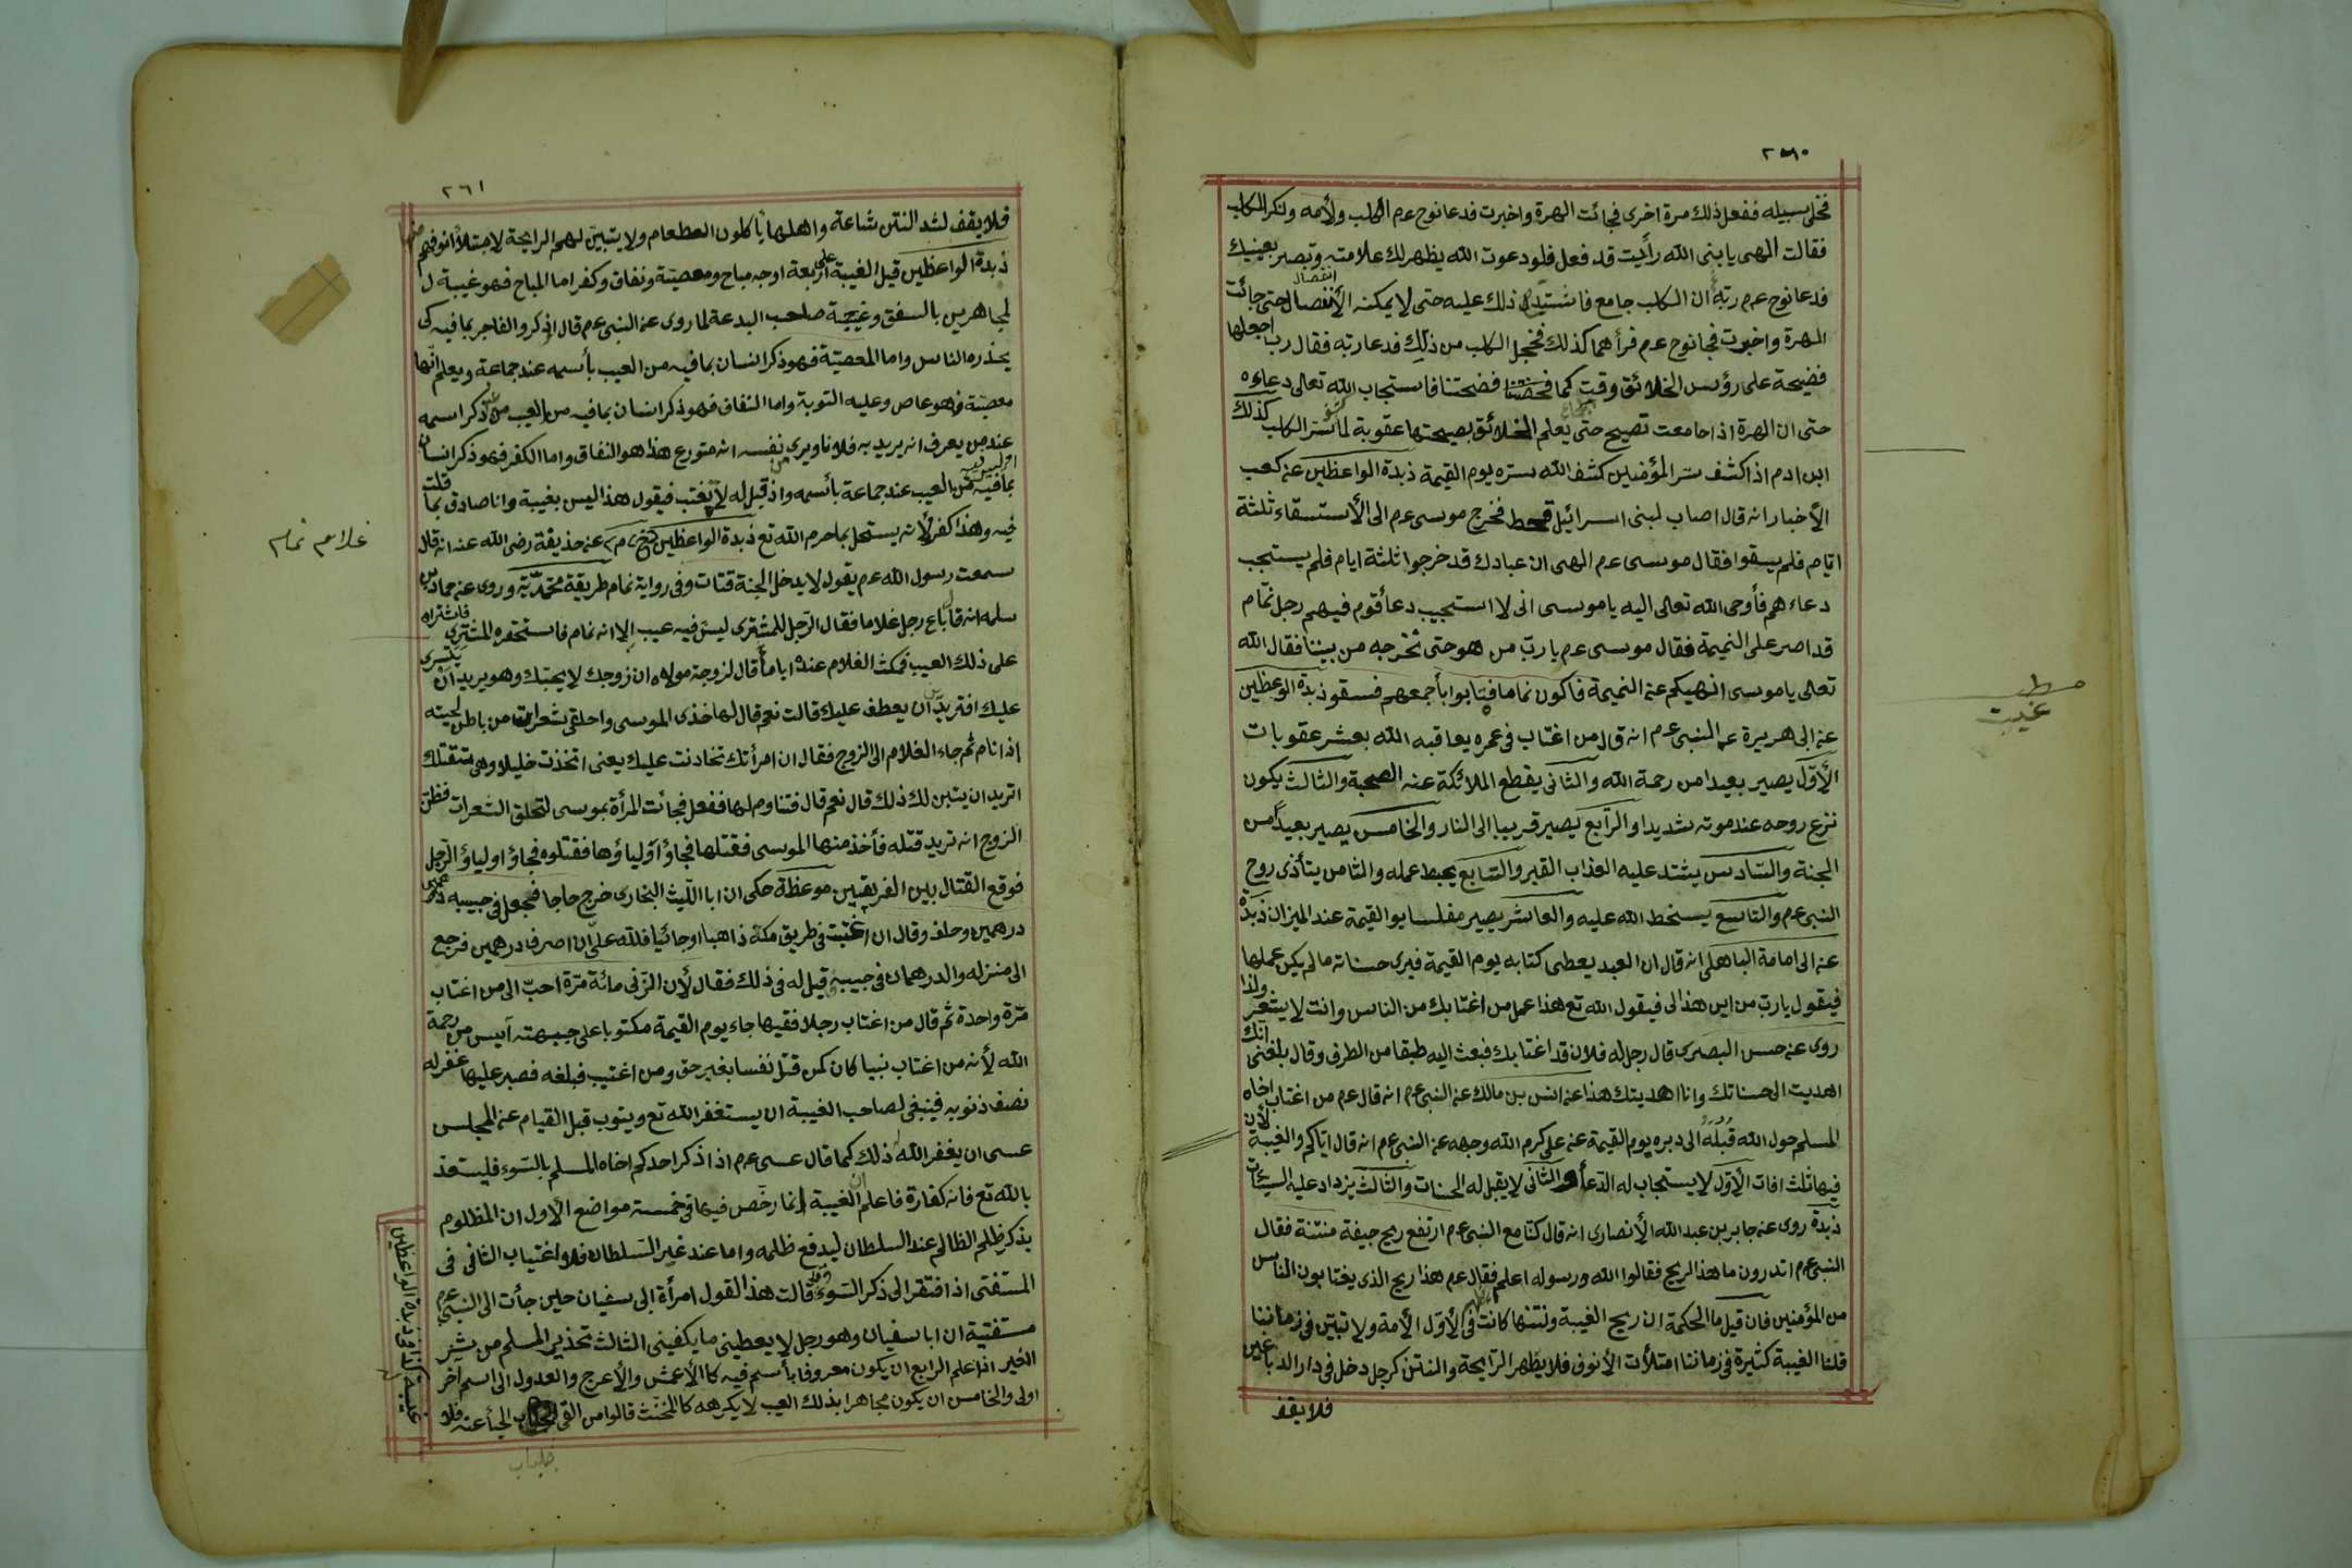 ٢٦٠
فخلى سبيله ففعل ذلك مرة اخرى فجائت الهرة واخبرت فدعا نوح عم الكلب ولأمه ونكر الكلب
فقالت الهى يا بنى الله رأيت قد فعل فلو دعوت الله يظهر لك علامته وتبصر بعينيك
فدعا نوح عم ربه ان الكلب جامع فاشتد ذلك عليه حتى لا يمكنه الأنفصال حتى جائت
انفصال
الهرة واخبرت فجا نوح عم فرأهما كذلك فخجل الكلب من ذلك فدعا ربه فقال رب اجعلها
فضيحة على رؤس الخلائق وقت كما فضحتنا فاستجاب الله تعالى دعاءه
حتى ان الهرة اذا جامعت تصيح حتى يعلم الخلائق بصيحتها عقوبة لما ستر الكلب كذلك
ابن ادم اذا كشف ستر المؤمنين كشف الله ستره يوم القيمة زبدة الواعظين عن كعب
الأخبار انه قال اصاب لبنى اسرائيل قحط فخرج موسى عم الى الأستسقاء ثلثة
ايام فلم يسقوا فقال موسى عم الهى ان عبادك قد خرجوا ثلثة ايام فلم يستجب
دعاءهم فأوحى الله تعالى اليه يا موسى انى لا استجيب دعأ قوم فيهم رجل نمّام
قد اصر على النميمة فقال موسى عم يا ربّ من هو حتى نخرجه من بيننا فقال الله
تعالى يا موسى انهيكم عن النميمة فاكون نماما فتابوا بأجمعهم فسقو زبدة الوعظين
عن ابى هريرة عن النبى عم انه قال من اغتاب فى عمره يعاقبه الله بعشر عقوبات
الأوّل يصير بعيدا من رحمة الله والثانى يقطع الملائكة عنه الصحبة والثالث يكون
نزع روحه عند موته شديدا والرابع يصير قريبا الى النار والخامس يصير بعيدا من
الجنة والسّادس يشتد عليه العذاب القبر والسّابع يحبط عمله والثامن يتأذى روح
النبى عم والتاسع يسخط الله عليه والعاشر يصير مفلسا يوالقيمة عند الميزان زبدة
عن ابى امامة الباهلى انه قال ان العبد يعطى كتابه يوم القيمة فيرى حسناته ما لم يكن عملها
فيقول يا ربّ من اين هذا لى فيقول الله تع هذا عمل من اغتابك من الناس وانت لا يشعر ولذا
روى عن حسن البصرى قال رجل له فلان قد اغتابك فبعث اليه طبقا من الطرف وقال بلغنى انك
اهديت الى حسناتك وانا اهديتك هذا عن انس بن مالك عن النبى عم انه قال عم من اغتاب اخاه
المسلم حول الله قبله الى دبره يوم القيمة عن على كرم الله وجهه عن النبى عم انه قال اياكم والغيبة لأن
فيها ثلث افات الأوّل لا يستجاب له الدعأ والثانى لا يقبل له الحسنات والثالث يزداد عليه السيئات
زبدة روى عن جابر بن عبد الله الأنصارى انه قال كنا مع النبى عم ارتفع ريح جيفة منتنة فقال
النبى عم اتدرون ما هذا الريح فقالوا الله ورسوله اعلم فقال عم هذا ريح الذى يغتابون الناس
من المؤمنين فان قيل ما الحكمة ان ريح الغيبة ونتنها كانت فى الأوّل الأمة ولا تبيّن فى زماننا
قلنا الغيبة كثيرة فى زماننا امتلأت الأنوف فلا يظهر الرّايحة والنتن كرجل دخل فى دار الدباغين
فلا يقف
مط
غيبت
٢٦١
فلا يقف لشد النتن شاعة واهلها يأكلون الطعام ولا يتبيّن لهم الرايحة لامتلأ انوفهم منها
زبدة الواعظين قيل الغيبة على اربعة اوجه مباح ومعصيّة ونفاق وكفر اما المباح فهو غيبة ل
لمجاهرين بالسفق وغيبة صاحب البدعة لما روى عن النبى عم قال اذكروا الفاجر بما فيه كى
يحذره الناس واما المعصيّة فهو ذكر انسان بما فيه من العيب بأسمه عند جماعة ويعلم انّها
معصيّة فهو عاص وعليه التوبة واما النفاق فهو ذكر انسان بما فيه من العيب من ذكر اسمه
عند من يعرف انه يريد به فلانا ويرى نفسه انه متورع هذا هو النفاق واما الكفر فهو ذكر انسان
بما فيه من العيب عند جماعة بأسمه واذ قيل له لا تغتب فيقول هذا ليس بغيبة وانا صادق بما قلت
فيه وهذا كفر لأنه يستحل بما حرم الله تع زبدة الواعظين عن حذيفة رضى الله عنه انه قال
سمعت رسول الله عم يقول لا يدخل الجنة قتات وفى رواية نمام طريقة محمّديّة وروى عن حماد بن
سلمه انه قا باع رجل غلاما فقال الرّجل للمشترى ليس فيه عيب الا انه نمام فاستحقره المشترى فاشتراه
على ذلك العيب فمكث الغلام عنده اياما قال لزوجة مولاه ان زوجك لا يحبّك وهو يريد ان يتسرى
عليك افتريد ان يعطف عليك قالت نعم قال لها خذى الموسى واحلقى شعرات من باطن لحيته
اذا نام ثم جاء الغلام الى الزوج فقال ان امرأتك تخادنت عليك يعنى اتخذت خليلا وهى تقتلك
اتريد ان يتبن لك ذلك قال نعم قال فتناوم لها ففعل فجائت المرأة بموسى لتحلق الشعرات فظن
الزوج انه تريد قتله فأخذ منها الموسى فقتلها فجاؤ اولياؤها فقتلوه فجاؤ اولياؤ الرّجل
فوقع القتال بين الفريقين موعظة حكى ان ابا اللّيث البخارى خرج حاجا فجعل فى جيبه
درهمين وحلف وقال ان اغتبت فى طريق مكة ذاهبا او جائيا فلله علىّ ان اصرف درهمين فرجع
الى منزله والدرهمان فى جيبه قيل له فى ذلك فقال لأن الزنى مائة مرّة احبّ الى من اغتاب
مرّة واحدة ثم قال من اغتاب رجلا فقيها جاء يوم القيمة مكتوبا على جبهته آيس من رحمة
الله لأنه من اغتاب نبيا كان كمن قتل نفسا بغير حق ومن اغتيب فبلغه فصبر عليها غفر له
نصف ذنوبه فينبغى لصاحب الغيبة ان يستغفر الله تع ويتوب قبل القيام عن المجلس
عسى ان يغفر الله ذلك كما قال عسى عم اذا ذكر احدكم اخاه المسلم بالسّوء فليستعذ
بالله تع فانه كفارة فاعلم ان الغيبة انما رخّص فيها فى خمسة مواضع الأول ان المظلوم
يذكر ظلم الظالم عند السلطان ليدفع ظلمه واما عند غير السّلطان فلا واغتياب الثانى فى
المستفتى اذا افتقر الى ذكر السّوء قالت هذا القول امرأة ابى سفيان حين جأت الى النبى عم
مستفتية ان ابا سفيان وهو رجل لا يعطينى ما يكفينى الثالث تحذير المسلم من شر
الخير اذا علم الرابع ان يكون معروفا بأسم فيه كالأعمش والأعرج والعدول الى اسم آخر
اولى والخامس ان يكون مجاهرا بذلك العيب لا يكرهه كالمخنّث قالوا من القى جلباب الحيأ عنه فلا
غيبة كذا فى زبدة الواعظين
جلباب
غلام نمام